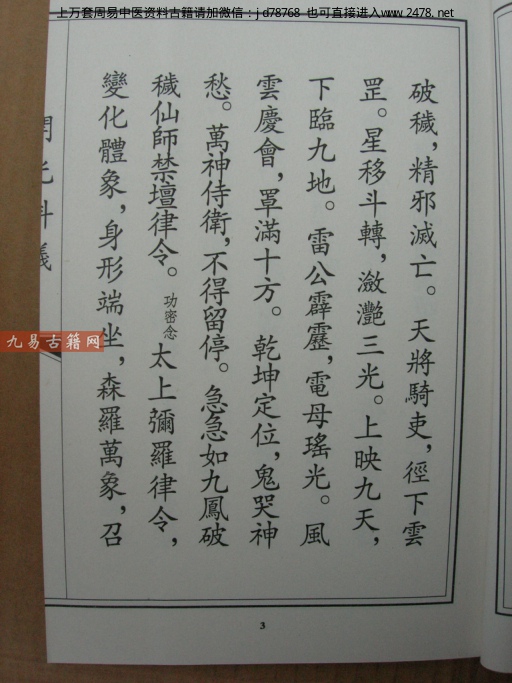 上万套周易中医资料古籍请加微信：jd78768 也可直接进入www.2478.net
破穢，精邪滅亡。天將騎吏，徑下雲
罡。星移斗轉，瀲灧三光。上映九天，
下臨九地。雷公霹靂，電母瑤光。風
雲慶會，罩滿十方。乾坤定位，鬼哭神
愁。萬神侍衛，不得留停。急急如九鳳破
穢仙師禁壇律令。功密念太上彌羅律令，
變化體象，身形端坐，森羅萬象，召
開光科儀
九易古籍网
3